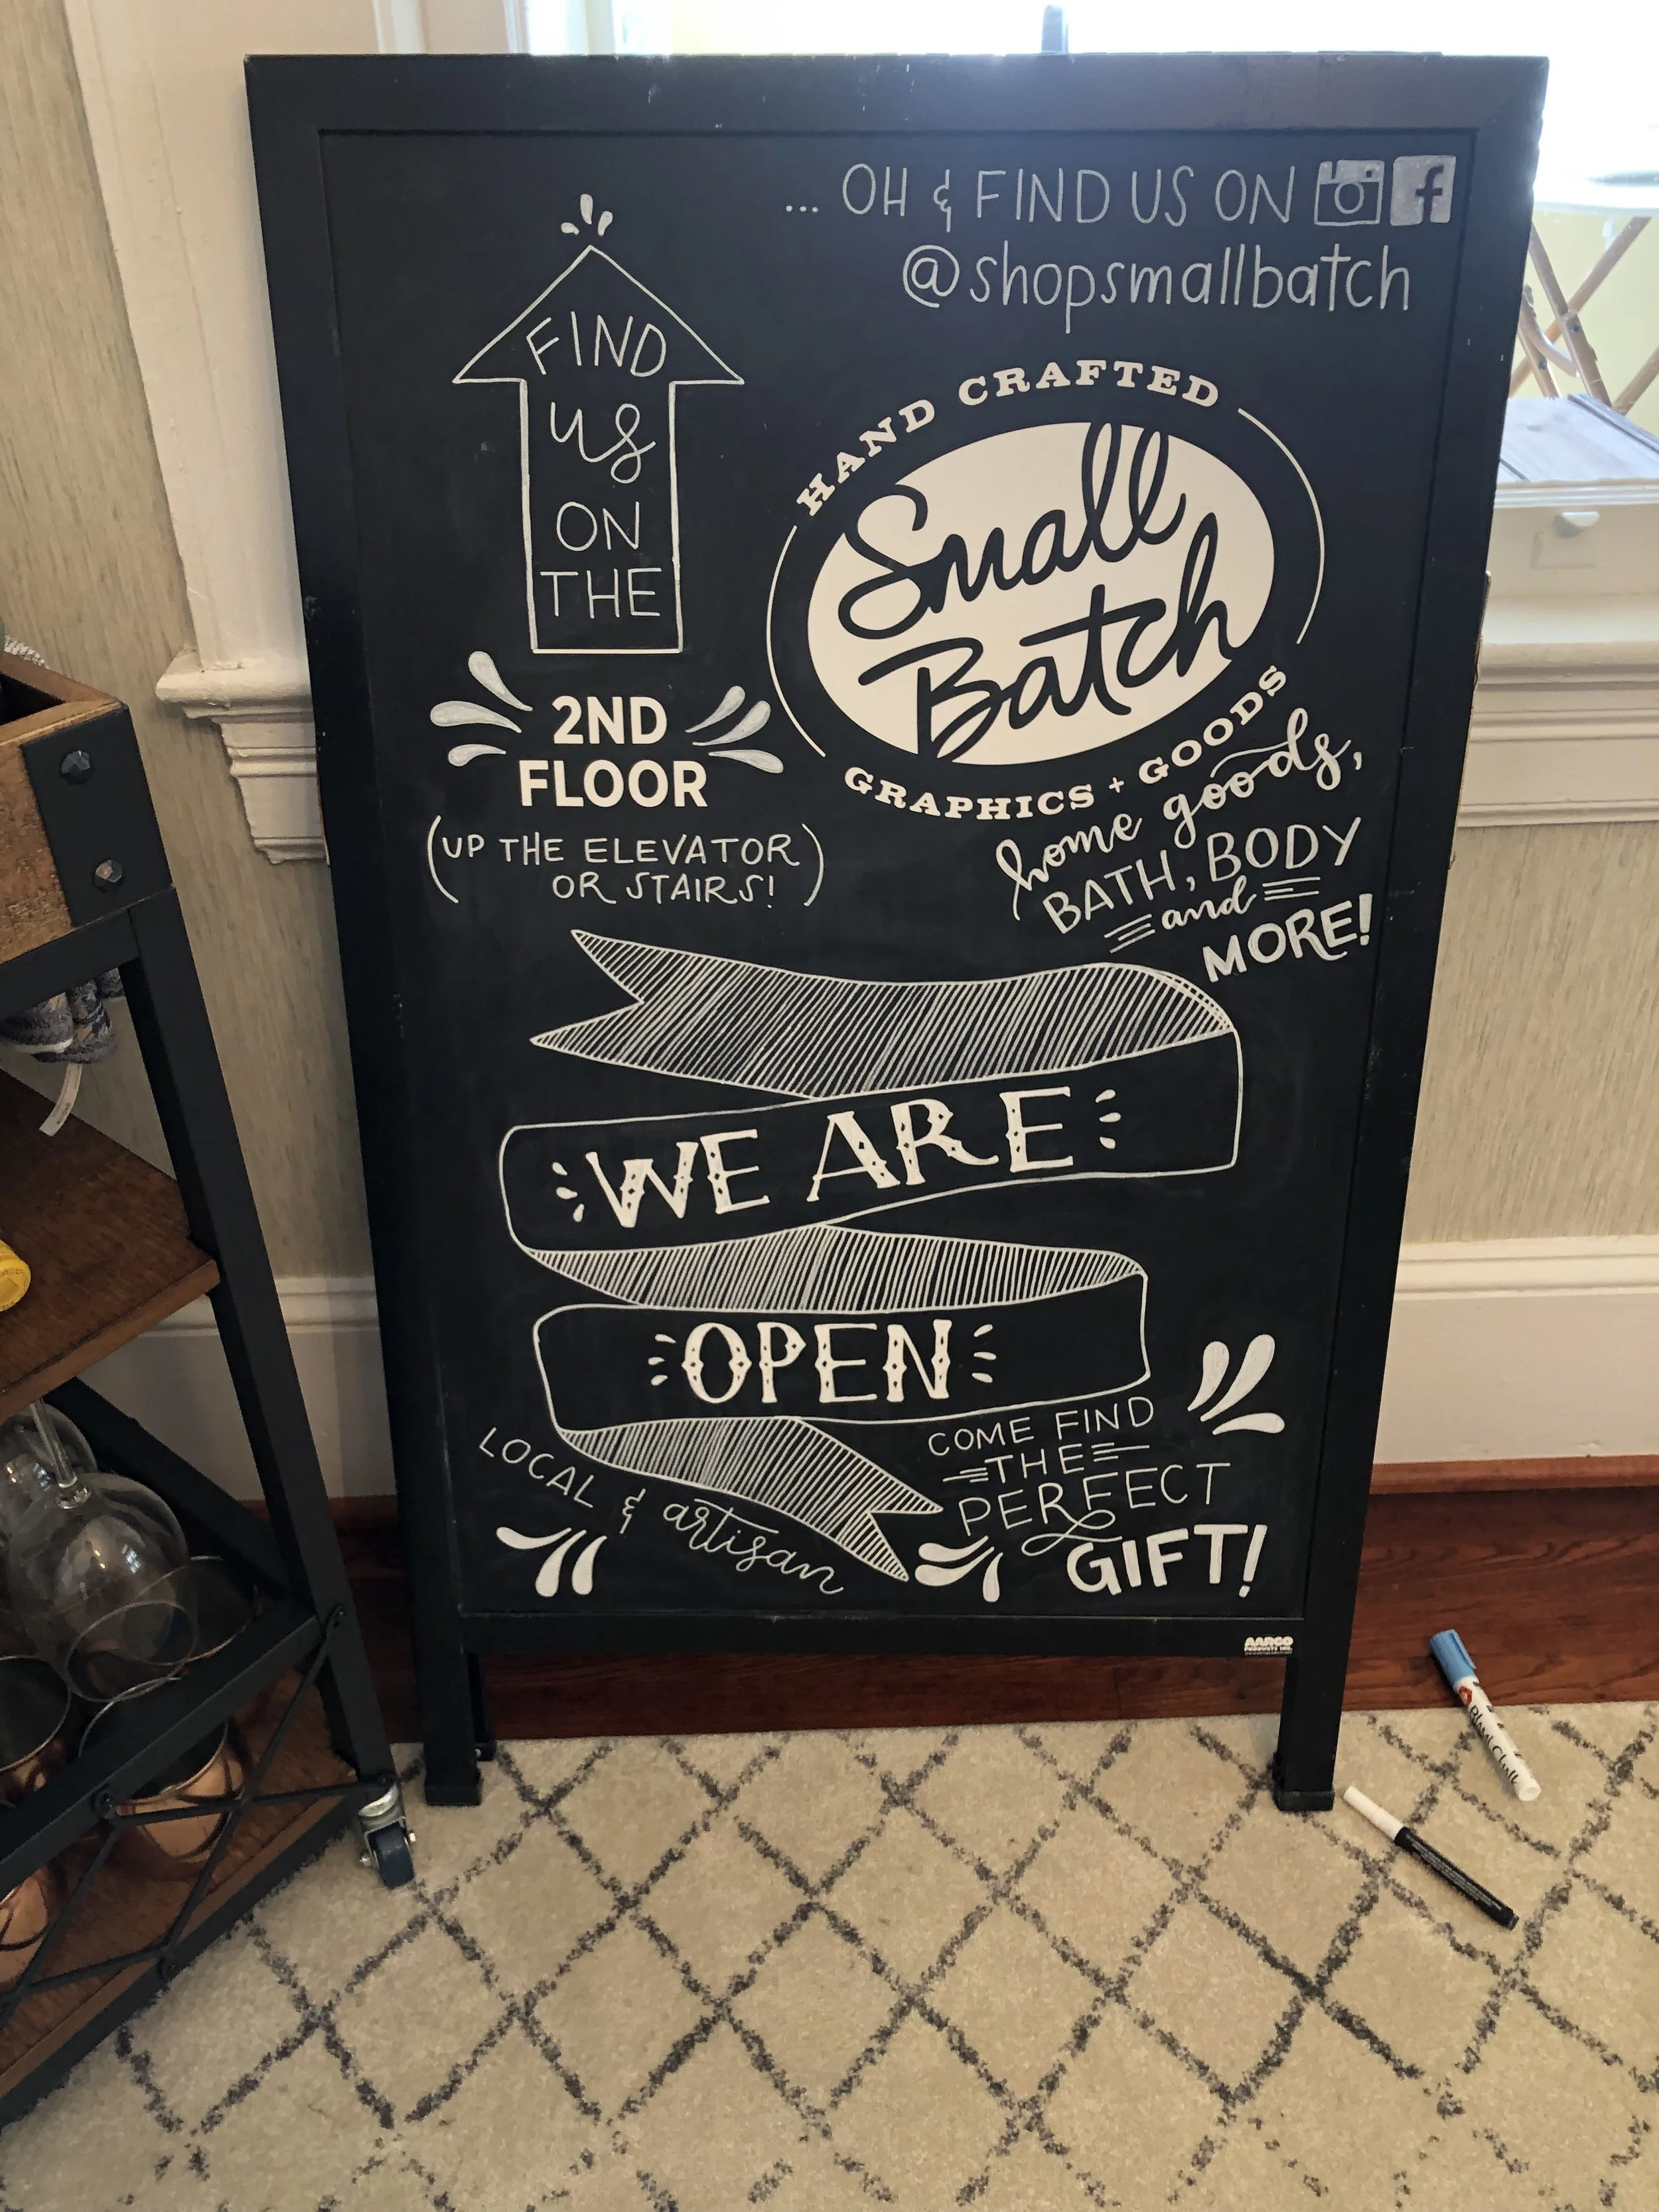 ... OH & FIND US ON
@shopsmallbatch
FIND
us
ON
THE
2ND
FLOOR
(UP THE ELEVATOR
OR STAIRS!)
HAND CRAFTED
Small
Batch
GRAPHICS + GOODS
home goods,
BATH, BODY
and
MORE!
WE ARE
OPEN
LOCAL & artisan
COME FIND
THE
PERFECT
GIFT!
AARCO
PRODUCTS INC.